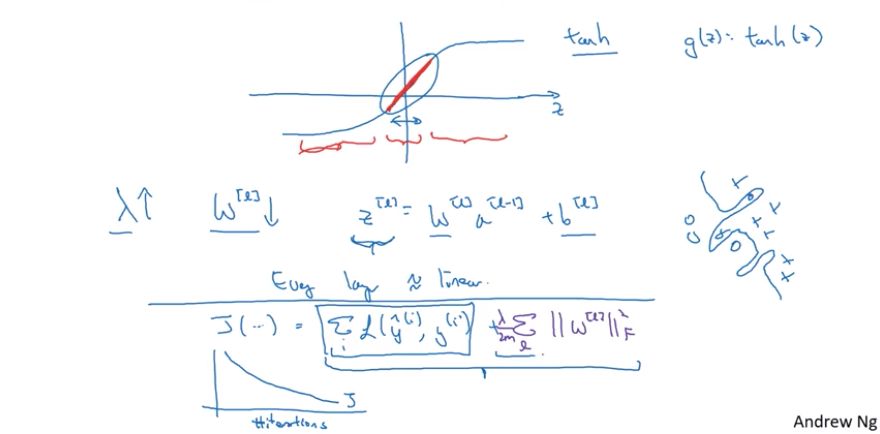 tanh g(z) = tanh(z)
z
λ↑ W^[l]↓ z^[l] = W^[l] a^[l-1] + b^[l]
Every layer ≈ linear.
J(...) = Σ_i L(ŷ^(i), y^(i)) + λ/2m Σ_l ||W^[l]||²_F
J
#iterations
Andrew Ng